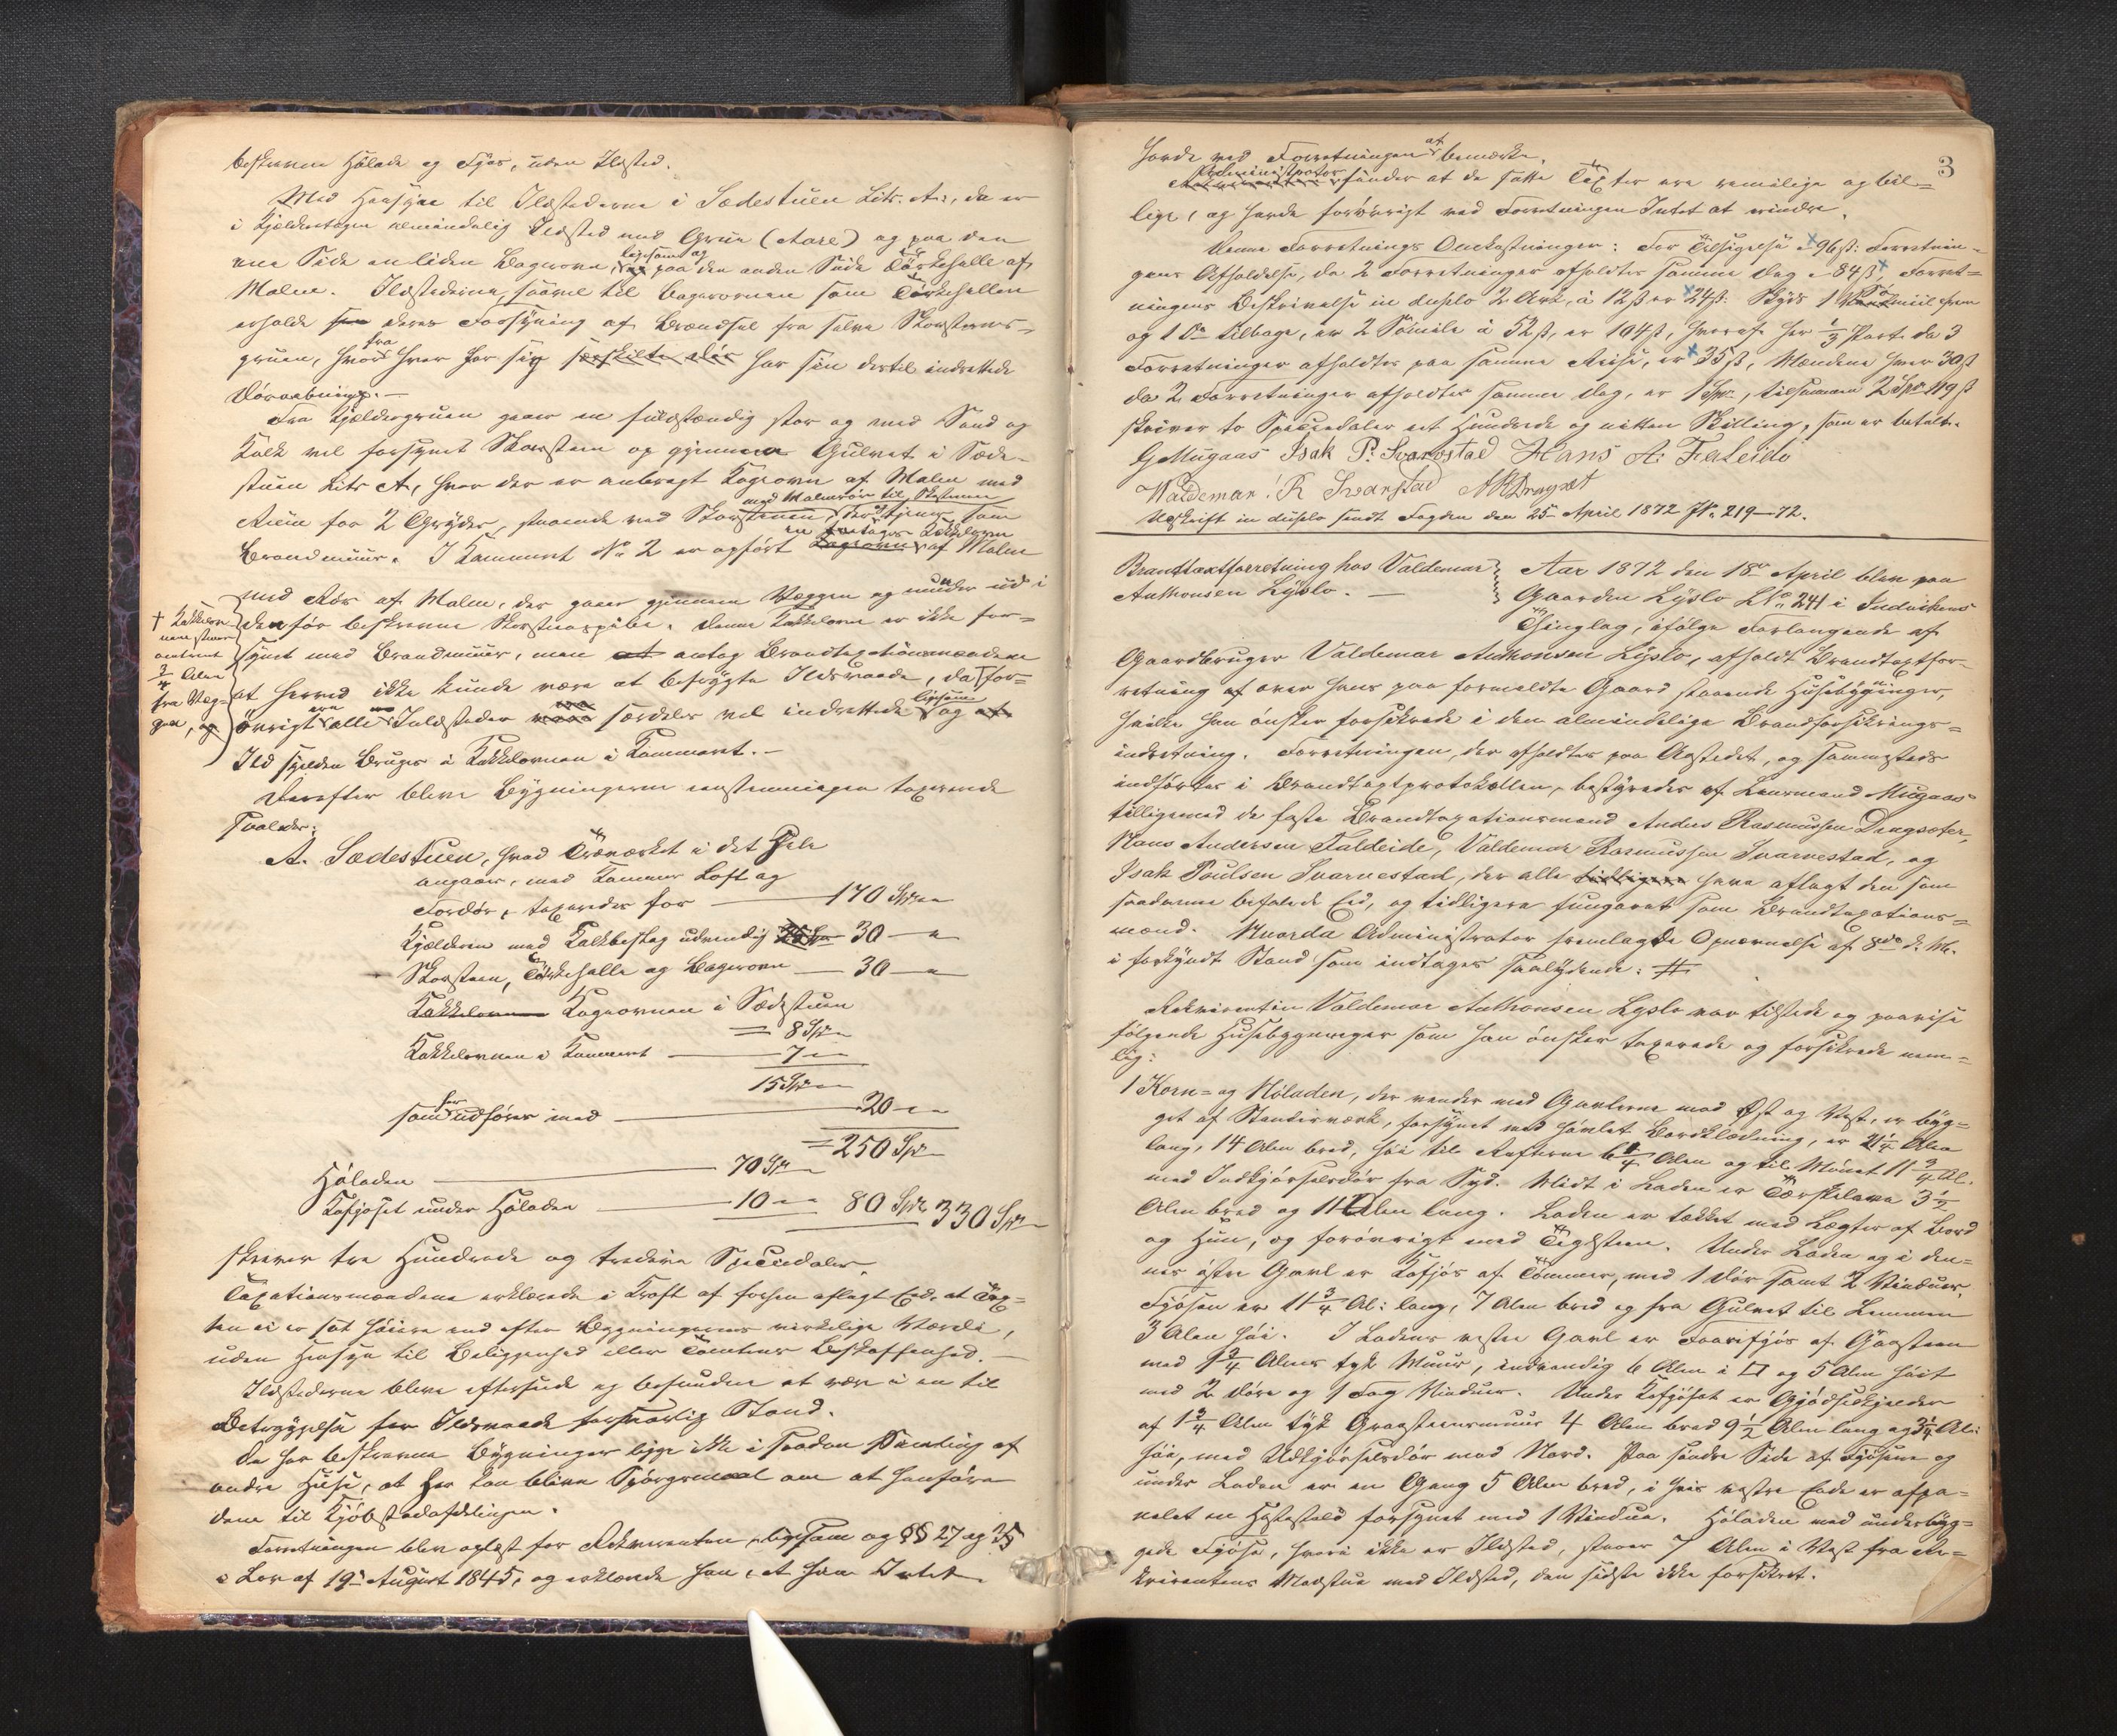 beskrevne Hölade og Fjøs, uden Ildsted.
Med Hensyn til Ildstederne i Sædestuen Litr. A., da er
i Kjelderetagen almindelig Ildsted med Grue (Aare) og paa den
ene Side en liden Bagerovn, ligesom og paa den anden Side Törkehelle af
Malm. Ildstederne, saavel til Bagerovnen som Törkehellen
erholde deres Forsyning af Brændsel fra selve Skorsteens-
gruen, hvorfra hver for sig særskilte dör har sin dertil indrettede
Döraabning.-
Fra Kjeldergruen gaaer en fuldstændig stor og med Sand og
Kalk vel forsynet Skorsteen op gjennem Gulvet i Sæde-
stuen Litr A, hvor der er anbragt Kogeovn af Malm med
Rum for 2 Gryder, staaende ved Skorstenen med Malmrör til Skorstenen, der tjener som
Brandmuur. I Kammeret No 2 er opfört Kogeovn en Etages Kakkelovn af Malm
med Rör af Malm, der gaaer gjennem Væggen og munder ud i
den för beskrevne Skorsteenspibe. Denne Kakkelovn er ikke for-
synet med Brandmuur, men antog Brandtaxationsmændene
† Kakkelov-
nen staaer
omtrent
3/4 Alen
fra Væg-
gen, og
at herved ikke kunde være at befrygte Ildsvaade, da for-
övrigt ere alle Ildsteder særdeles vel indrettede ligesom og
Ild sjelden Bruges i Kakkelovnen i Kammeret.-
Derefter bleve Bygningerne eenstemmigen taxerede
saaledes:
A. Sædestuen, hvad Træværket i det Hele
angaaer, med Kammer Loft og
Fordör, taxeredes for — 170 Spd
Kjelderen med Kalkbeslag udvendig 30 — "
Skorsteen, Törkehelle og Bagerovn — 30 — "
Kakkelovnen Kogeovnen i Sædestuen
= 8 Spd
Kakkelovnen i Kammeret — 7 —
15 Spd
som her udföres med — 20 —
= 250 Spd
Höladen — 70 Spd
Kofjöset under Höladen — 10 — 80 Spd 330 Spd
skriver tre Hundrede og tredive Speciedaler.
Taxationsmændene erklærede i Kraft af forhen aflagt Eed, at Tax-
ten ei er sat höiere end efter Bygningernes virkelige Værdi,
uden Hensyn til Beliggenhed eller Tomtens Beskaffenhed. —
Ildstederne bleve efterseede og befundne at være i en til
Betryggelse for Ildsvaade forsvarlig Stand.
De her beskrevne Bygninger ligge ikke i saadan Samling af
andre Huse, at her kan blive Spörgsmaal om at henföre
dem til Kjöbstadafdelingen.
Forretningen blev oplæst for Rekvirenten, ligesom og §§ 27 og 35
i Lov af 19de August 1845, og erklærede han, at han Intet
3
havde ved Forretningen at bemærke.
Administrator finder at de satte Taxter ere rimelige og bil-
lige, og havde forövrigt ved Forretningen Intet at erindre.
Denne Forretnings Omkostninger: For Tilsigelse x 96 ß: Forretnin-
gens Afholdelse, da 2 Forretninger afholdtes samme Dag = 84 ß x, Forret-
ningens Beskrivelse in duplo 2 Ark, á 12 ß er x 24 ß. Skyds 1 Sömiil frem
og 1 Do tilbage, er 2 Sömile á 52 ß, er 104 ß, hvoraf her 1/3 Part da 3
Forretninger afholdtes paa samme Reise, er x 35 ß, Mændene hver 30 ß
da 2 Forretninger afholdtes samme Dag, er 1 Spd, tilsammen 2 Spd 119 ß
skriver to Speciedaler eet Hundrede og nitten Skilling, som er betalt.
GMugaas Isak P. Svarstad Hans A: Faleide
Waldemar R Svarstad ARDragset
Udskrift in duplo sendt Fogden den 25de April 1872 JNo 219-72.
Brandtaxtforretning hos Valdemar
Anthonsen Lyslo. —
Aar 1872 den 18de April blev paa
Gaarden Lyslo LNo 241 i Indvikens
Thinglag, ifölge Forlangende af
Gaardbruger Valdemar Anthonsen Lyslo, afholdt Brandtaxtfor-
retning over hans paa formeldte Gaard staaende Husebygninger,
hvilke han önsker forsikrede i den almindelige Brandforsikrings-
indretning. Forretningen, der afholdtes paa Aastedet, og sammesteds
indförtes i Brandtaxtprotokollen, bestyredes af Lensmand Mugaas
tilligemed de faste Brandtaxationsmænd Anders Rasmussen Dragsæter,
Hans Andersen Faleide, Valdemar Rasmussen Svarvestad, og
Isak Poulsen Svarvestad, der alle tidligere have aflagt den som
saadanne befalede Eed, og tidligere fungeret som Brandtaxations-
mænd. Hvorda Administrator fremlagde Opnævnelse af 8de d. M.
i forkyndt Stand som indtages saalydende: #
Rekvirenten Valdemar Anthonsen Lyslo var tilstede og paaviste
fölgende Husebygninger som han önsker taxerede og forsikrede nem-
lig:
1 Korn- og Höladen, der vender med Gavlerne mod Öst og Vest, er byg-
get af Standerværk, forsynet med hövlet Bordklædning, er 21 1/4 Alen
lang, 14 Alen bred, höi til Rafterne 6 1/4 Alen og til Mönet 11 3/4 Al.
med Indkjörselsdör fra Syd. Midt i Laden er Tærskelave 3 1/2
Alen bred og 11 Alen lang. Laden er tækket med Lægter af Bord
og Hun, og forövrigt med Tegelsteen. Under Laden og i den-
nes östre Gavl er Kofjös af Tömmer, med 1 Dör samt 2 Vinduer.
Fjösen er 11 3/4 Al: lang, 7 Alen bred og fra Gulvet til Lemmen
3 Alen höi. I Ladens vestre Gavl er Faarefjös af Graasteen
med 1 3/4 Alens tyk Muur, indvendig 6 Alen i □ og 5 Alen höit
med 2 döre og 1 Fag Vinduer. Under Kofjöset er Gjödselkjelder
af 1 3/4 Alen tyk Graasteensmuur 4 Alen bred 9 1/2 Alen lang og 3 1/4 Al:
höi, med Udkjörselsdör mod Nord. Paa söndre Side af Fjösene og
under Laden er en Gang 5 Alen bred, i hvis vestre Ende er afpa-
nelet en Hestestald forsynet med 1 Vindue. Höladen med underbyg-
gede Fjöse, hvori ikke er Ildsted, staaer 7 Alen i Vest fra Re-
kvirentens Madstue med Ildsted, den sidste ikke forsikret.